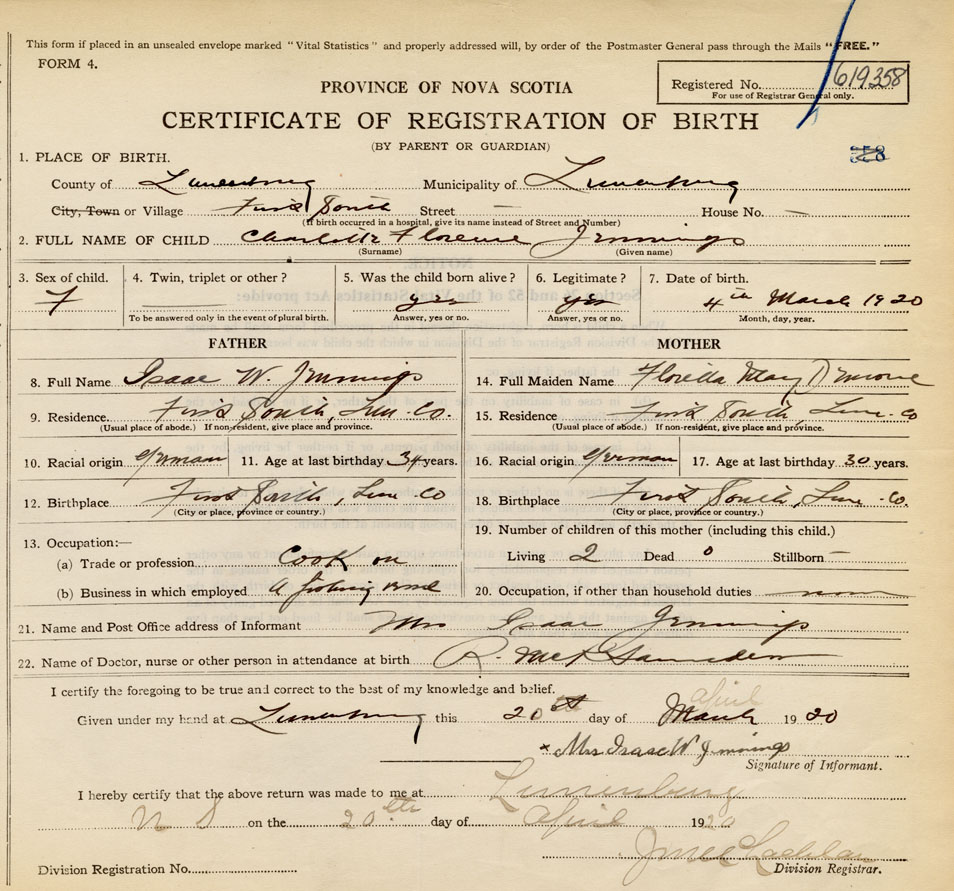 This form if placed in an unsealed envelope marked "Vital Statistics" and properly addressed will, by order of the Postmaster General pass through the Mails "FREE."
FORM 4.
PROVINCE OF NOVA SCOTIA
Registered No. 619358
For use of Registrar General only.
CERTIFICATE OF REGISTRATION OF BIRTH
(BY PARENT OR GUARDIAN)
358
1. PLACE OF BIRTH.
County of Lunenburg Municipality of Lunenburg
City, Town or Village First South Street — House No. —
(If birth occurred in a hospital, give its name instead of Street and Number)
2. FULL NAME OF CHILD Charlotte Florence Jennings
(Surname) (Given name)
3. Sex of child. 4. Twin, triplet or other? 5. Was the child born alive? 6. Legitimate? 7. Date of birth.
F yes yes 4th March 1920
To be answered only in the event of plural birth. Answer, yes or no. Answer, yes or no. Month, day, year.
FATHER MOTHER
8. Full Name Isaac W. Jennings 14. Full Maiden Name Floretta May
9. Residence First South, Lun. Co. 15. Residence First South, Lun. Co
(Usual place of abode.) If non-resident, give place and province. (Usual place of abode.) If non-resident, give place and province.
10. Racial origin German 11. Age at last birthday 34 years. 16. Racial origin German 17. Age at last birthday 30 years.
12. Birthplace First South, Lun. Co 18. Birthplace First South, Lun. Co.
(City or place, province or country.) (City or place, province or country.)
13. Occupation:— 19. Number of children of this mother (including this child.)
(a) Trade or profession Cook on Living 2 Dead 0 Stillborn —
(b) Business in which employed A fishing vessel 20. Occupation, if other than household duties none
21. Name and Post Office address of Informant Mrs Isaac Jennings
22. Name of Doctor, nurse or other person in attendance at birth R. McK Saunders
I certify the foregoing to be true and correct to the best of my knowledge and belief.
April
Given under my hand at Lunenburg this 20th day of March 1920
x Mrs. Isaac W Jennings
Signature of Informant.
I hereby certify that the above return was made to me at Lunenburg
N S on the 20th day of April 1920
Division Registration No. Division Registrar.